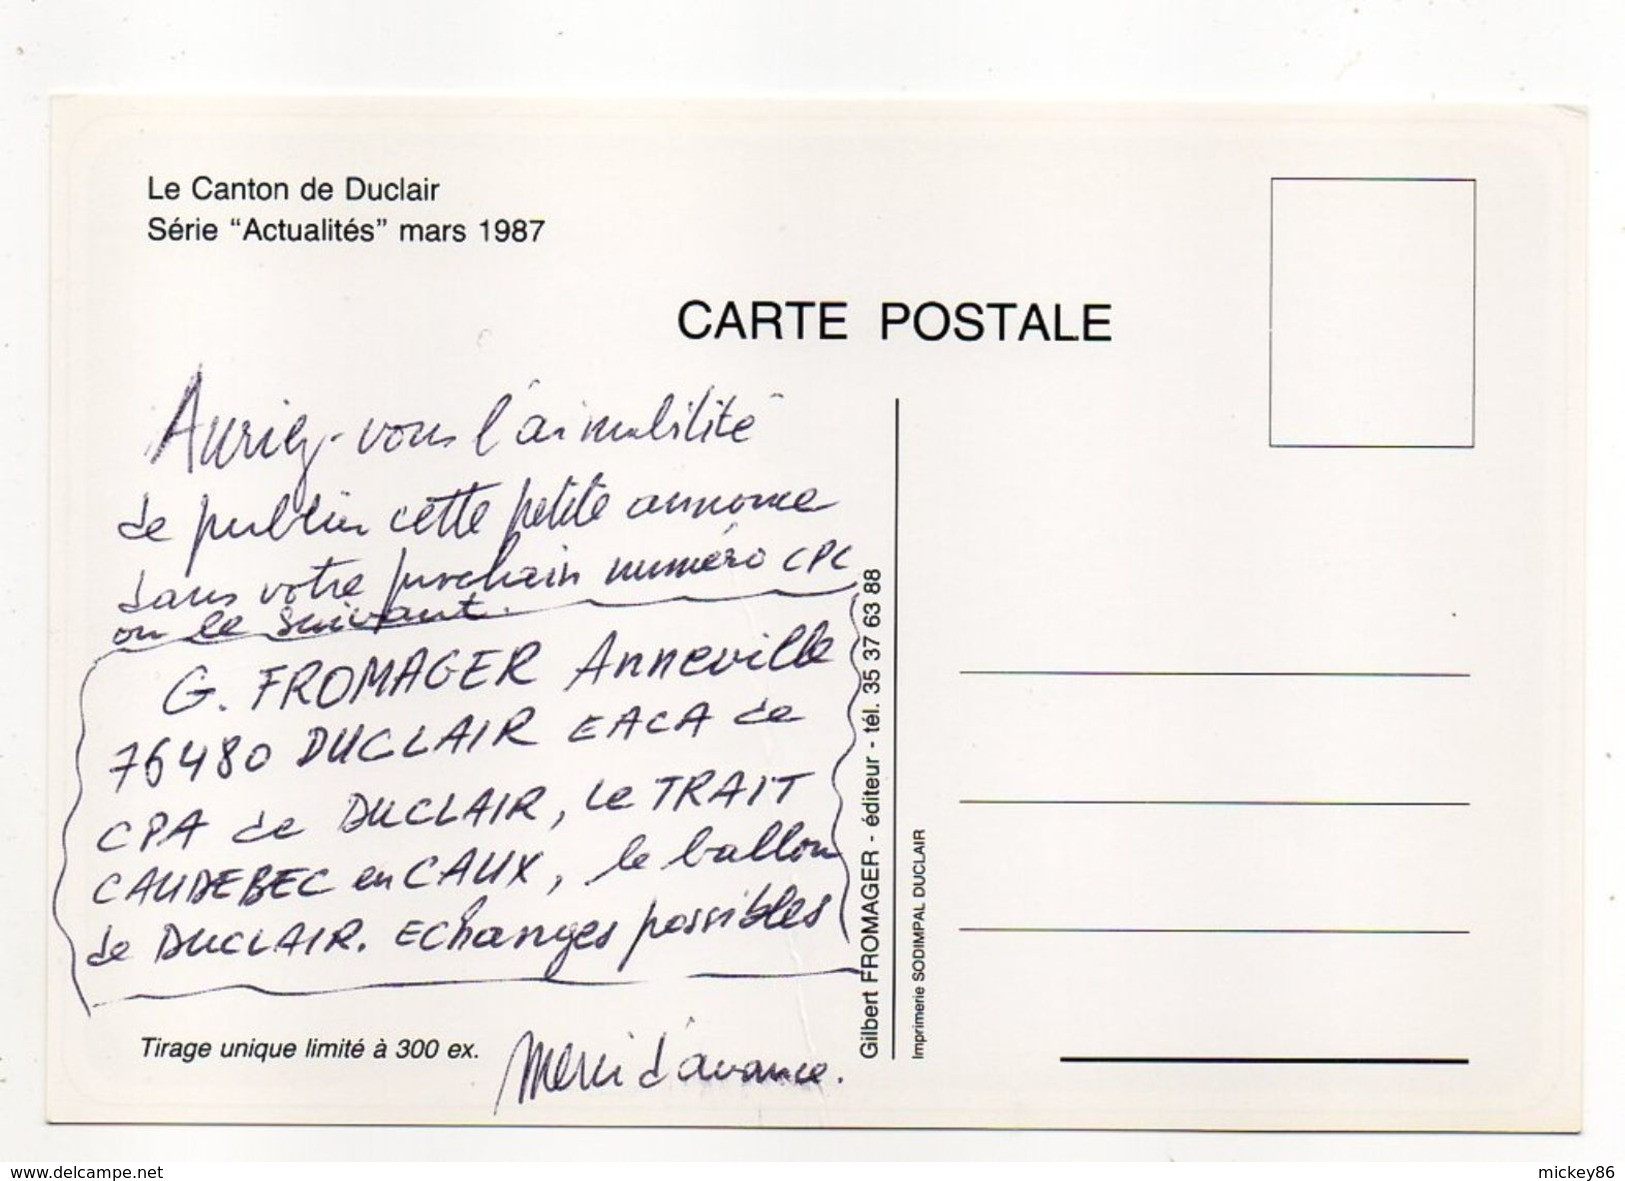 Le Canton de Duclair
Série “Actualités” mars 1987
CARTE POSTALE
Auriez-vous l'aimabilité
de publier cette petite annonce
dans votre prochain numéro CPC
ou le suivant.
G. FROMAGER Anneville
76480 DUCLAIR EACA de
CPA de DUCLAIR, Le TRAIT
CAUDEBEC en CAUX, le ballon
de DUCLAIR. Echanges possibles
Merci d'avance.
Tirage unique limité à 300 ex.
Gilbert FROMAGER - éditeur - tél. 35 37 63 88
Imprimerie SODIMPAL DUCLAIR
www.delcampe.net
mickey86